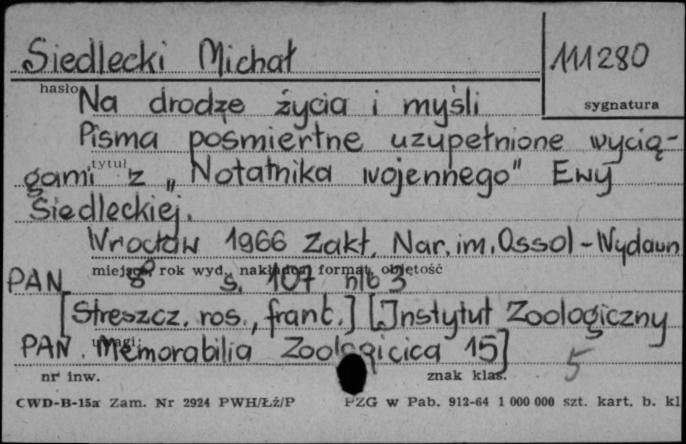 Siedlecki Michał
111280
hasło
sygnatura
Na drodze życia i myśli
Pisma pośmiertne uzupełnione wycią-
tytuł
gami z „Notatnika wojennego" Ewy
Siedleckiej.
Wrocław 1966 Zakł. Nar. im. Ossol-Wydawn
miejsce, rok wyd., nakładca, format, objętość
PAN 8° s. 107 nlb 3
[Streszcz. ros., franc.] [Instytut Zoologiczny
uwagi:
PAN. Memorabilia Zoologicica 15]
5
nr inw.
znak klas.
CWD-B-15a Zam. Nr 2924 PWH/Łź/P
PZG w Pab. 912-64 1 000 000 szt. kart. b. kl